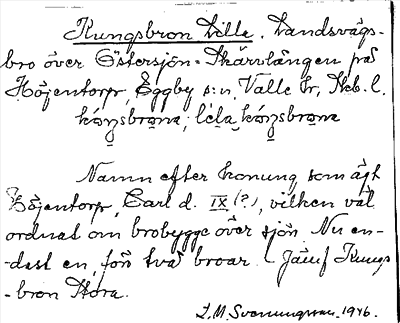 Kungsbron Lilla. Landsvägs-
bro över Ostersjön-Skärvlången på
Höjentorp, Eggby s:n, Valle hr, Skb. l.
kóŋsbrona; lɩla kóŋsbrona
Namn efter konung som ägt
Höjentorp, Carl d. IX (?), vilken väl
ordnat om brobygge över sjön. Nu en-
-dast en, förr två broar. - Jämf Kungs
-bron Stora.
L.M. Svenungsson. 1946.